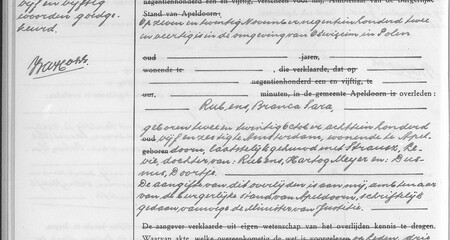 negentienhonderd een en vijftig, verscheen voor mij, Ambtenaar van de Burgerlijke
vijf en vijftig
Stand van Apeldoorn:
woorden goedge-
keurd.
Op zeven en twintig November negentienhonderd twee
en veertig is in de omgeving van Oswiecim in Polen
oud jaren,
wonende te , die verklaarde, dat op
negentienhonderd een en vijftig, te
uur, minuten, in de gemeente Apeldoorn is overleden:
Rubens, Branca Sara,
geboren twee en twintig October achttienhonderd
vijf en zestig te Amsterdam, wonende te Apel-
geboren doorn, laatstelijk gehuwd met Strauss, Le-
vie, dochter van: Rubens, Hartog Meyer en:
, Doortje.
De aangifte van dit overlijden is aan mij, ambtenaar
van de burgerlijke stand van Apeldoorn, schriftelijk
gedaan, vanwege de Minister van Justitie.
De aangever verklaarde uit eigen wetenschap van het overlijden kennis te dragen.
Waarvan akte, welke overeenkomstig de wet is voorgelezen op heden, drie